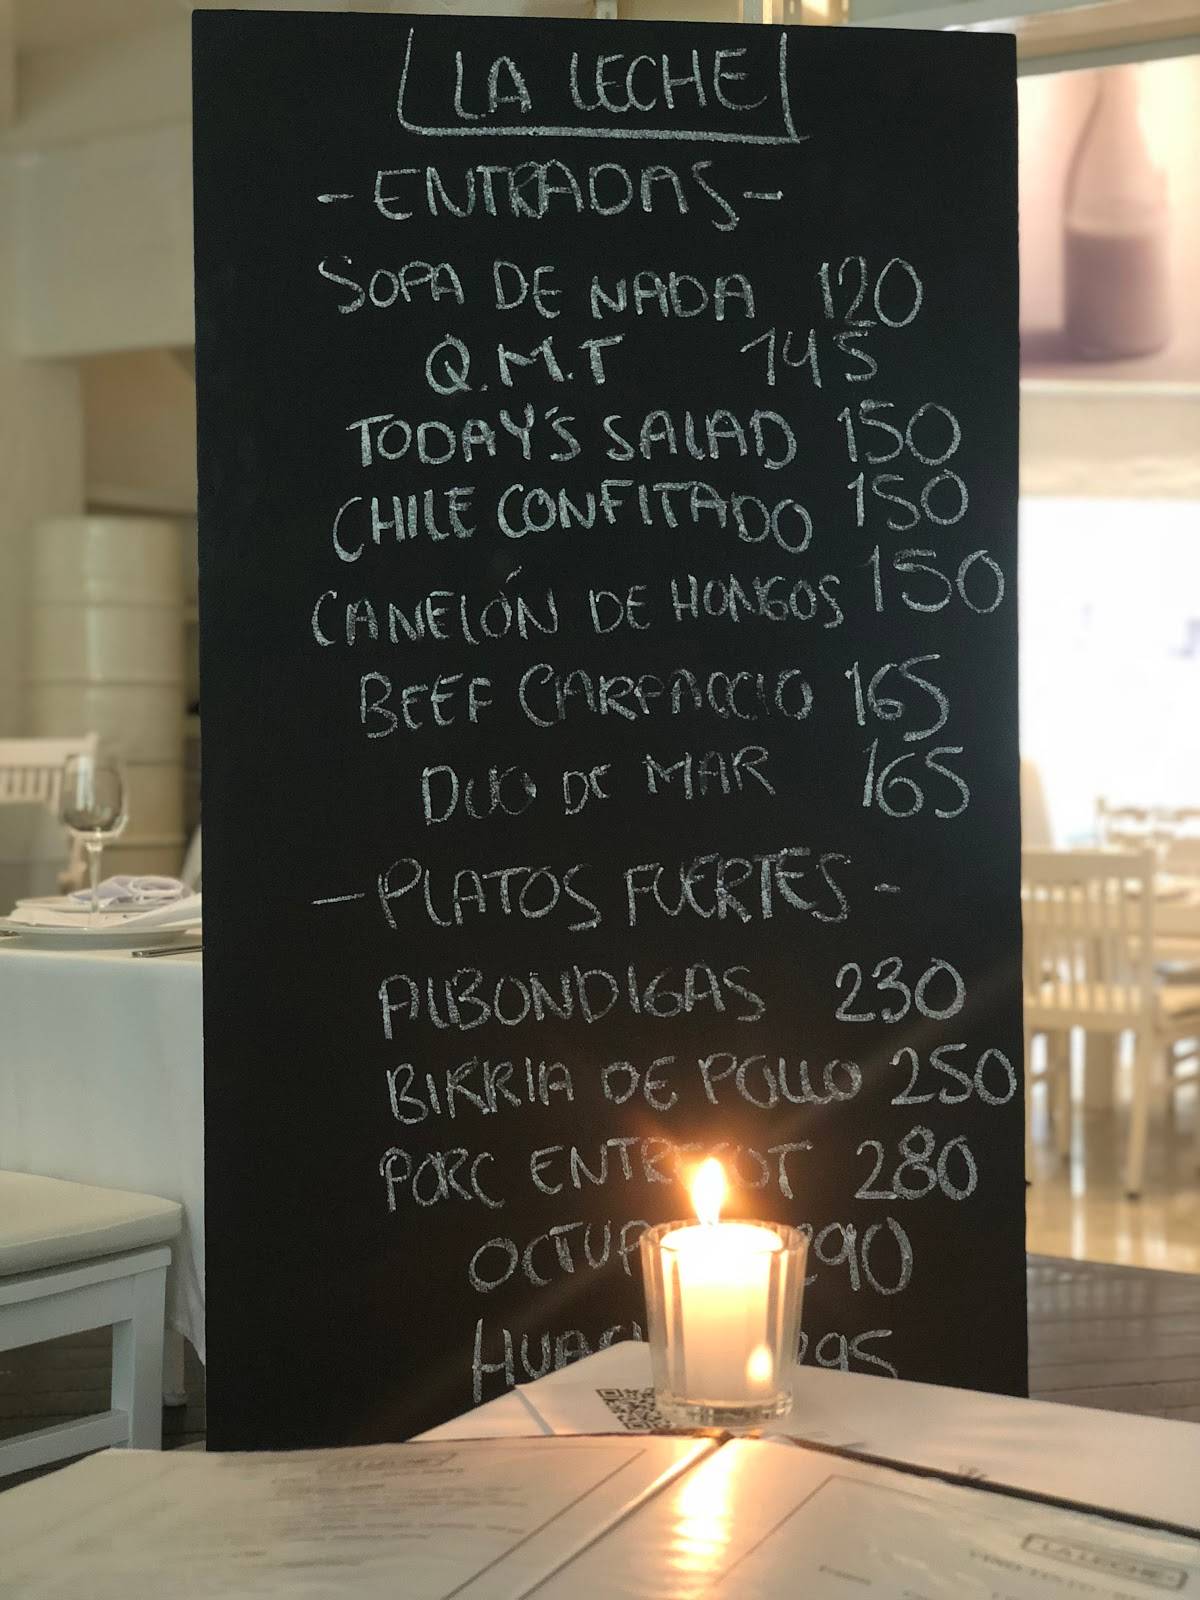 LA LECHE
-ENTRADAS-
SOPA DE NADA 120
Q.M.T 145
TODAY'S SALAD 150
CHILE CONFITADO 150
CANELÓN DE HONGOS 150
BEEF CARPACCIO 165
DUO DE MAR 165
-PLATOS FUERTES-
ALBONDIGAS 230
BIRRIA DE POLLO 250
PORC 280
LA LECHE